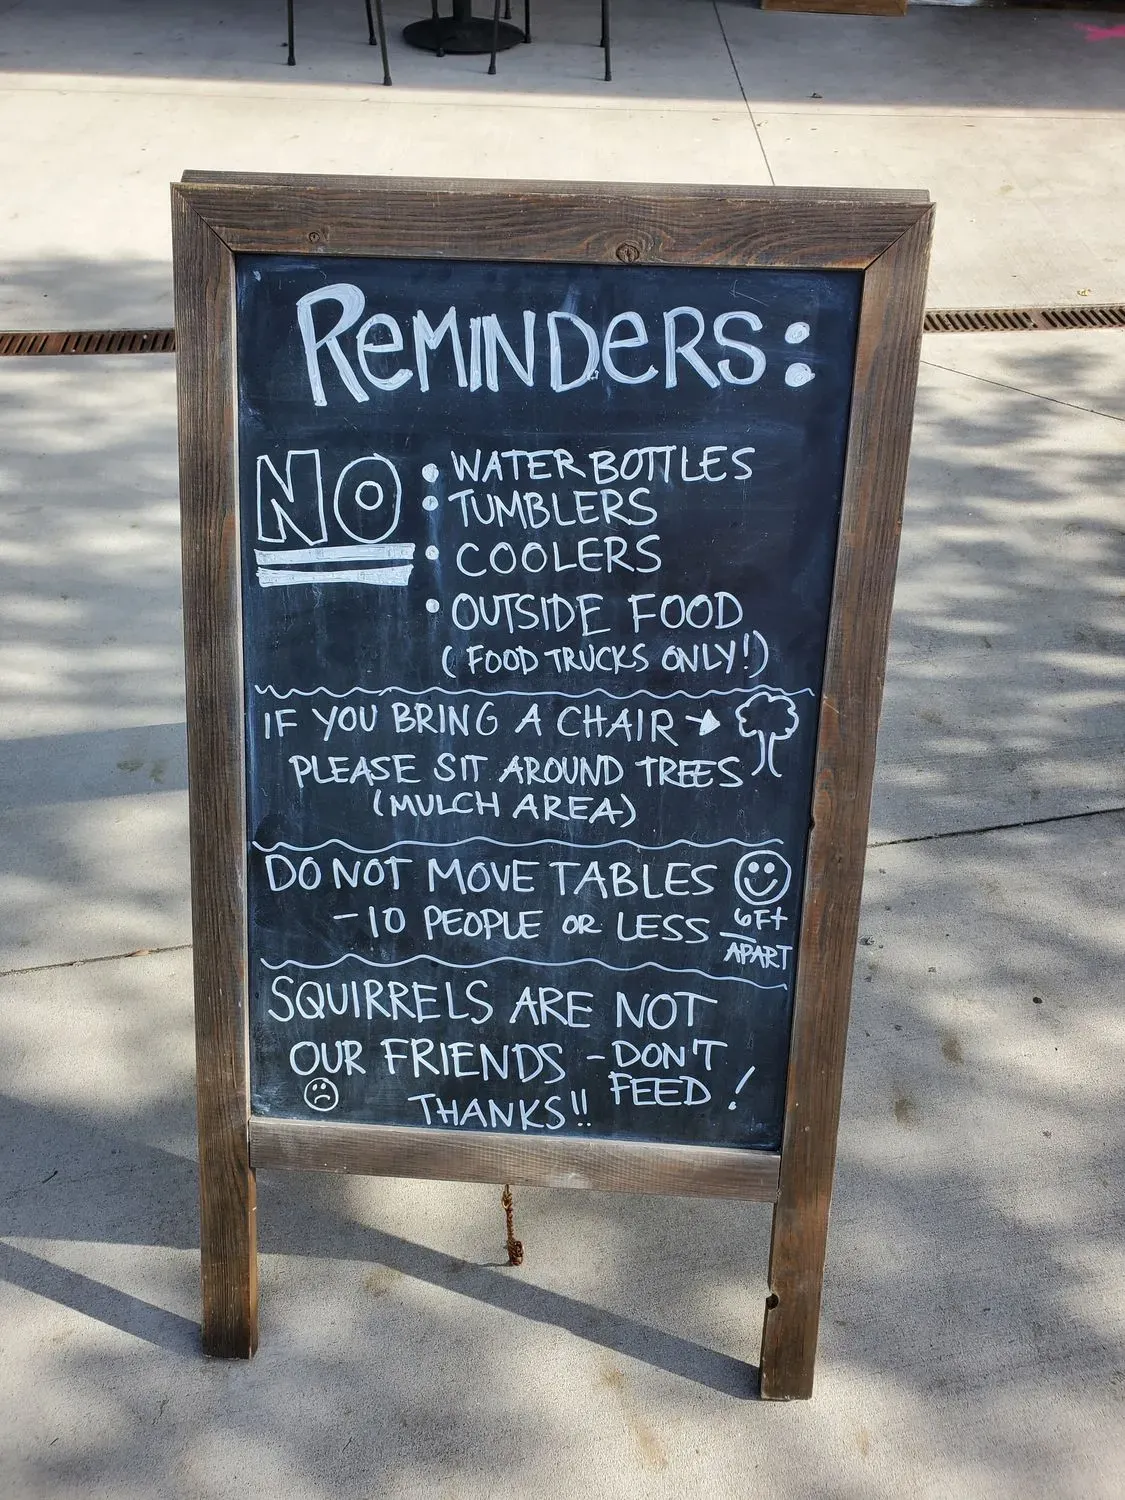 ReMINDeRS:
NO : • WATER BOTTLES
• TUMBLERS
• COOLERS
• OUTSIDE FOOD
(FOOD TRUCKS ONLY!)
IF YOU BRING A CHAIR →
PLEASE SIT AROUND TREES
(MULCH AREA)
DO NOT MOVE TABLES
-10 PEOPLE OR LESS 6Ft
APART
SQUIRRELS ARE NOT
OUR FRIENDS - DON'T
FEED!
THANKS!!